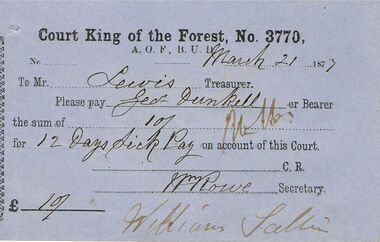 Court King of the Forest, No. 3770,
A. O. F., B. U. D.
No March 21 1877
To Mr. Lewis Treasurer.
Please pay Geo Dunkell or Bearer
the sum of 10/
for 12 Days Sick Pay on account of this Court.
C. R.
Wm Rowe Secretary.
£ 10/
William